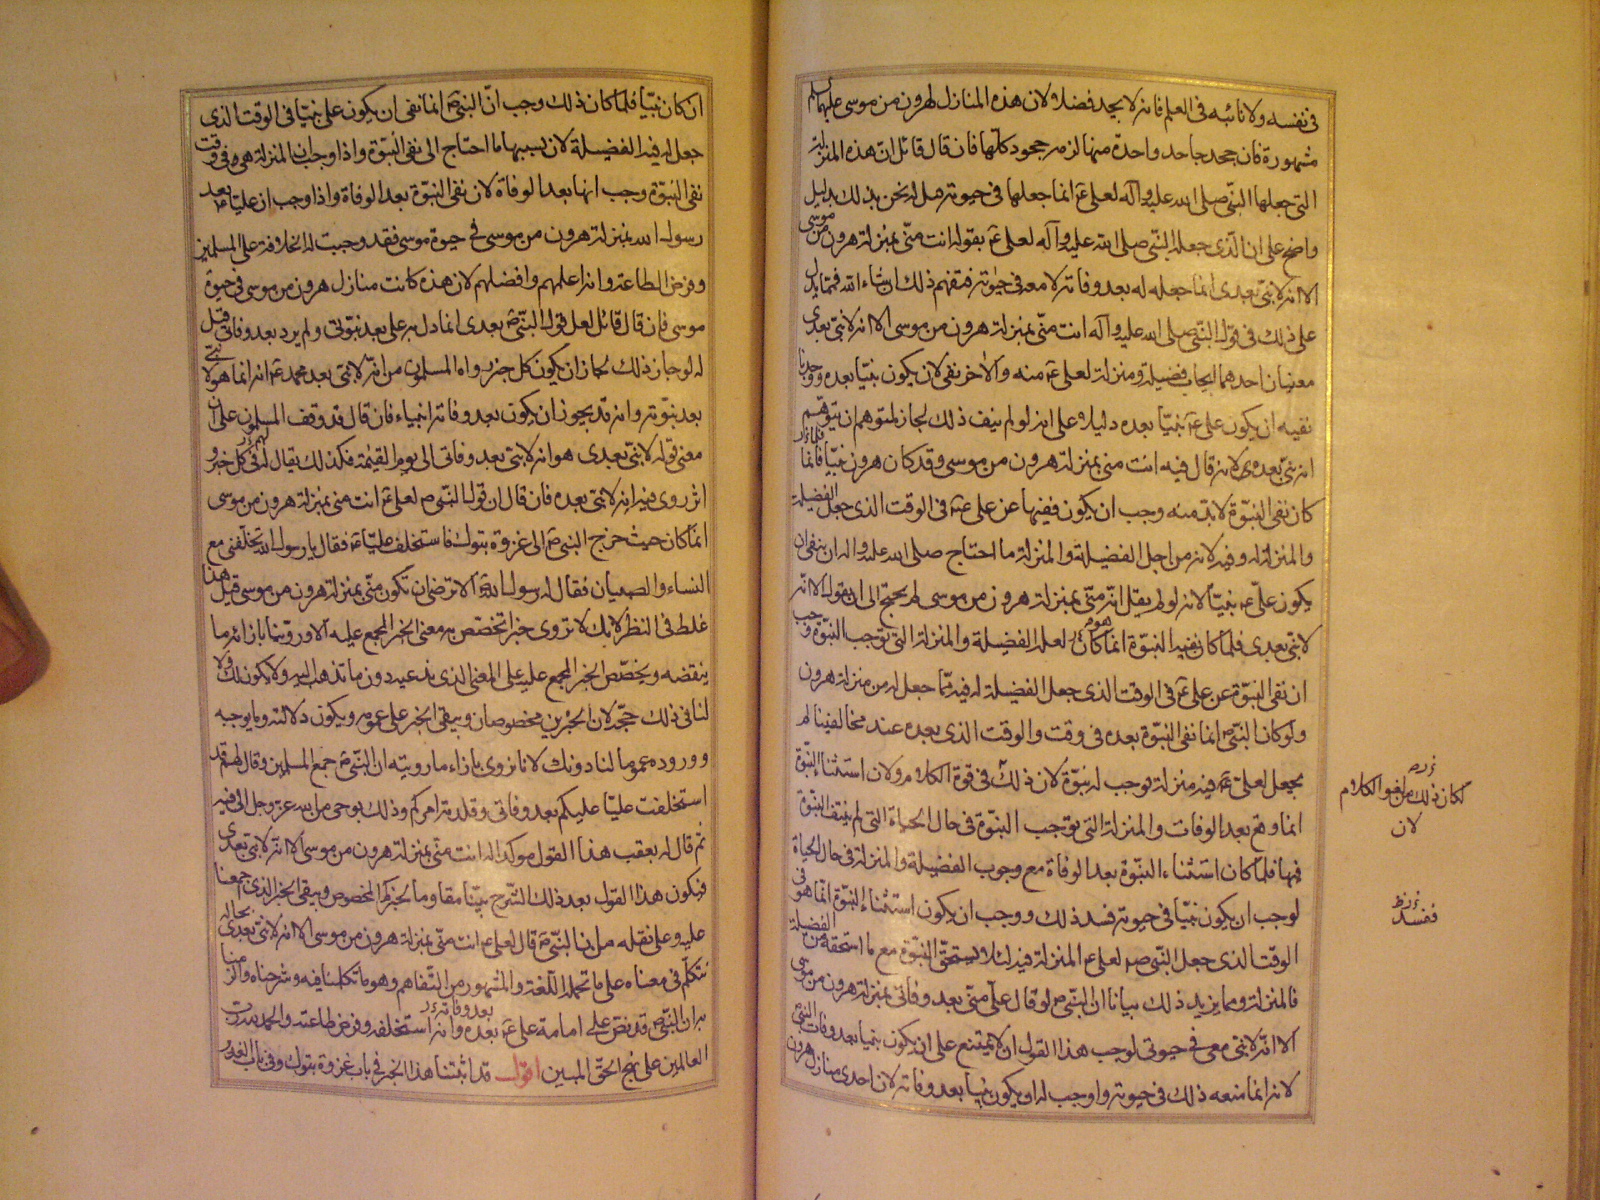 فى نفسه ولا نائبه فى العلم فانه لا يجد فضلا ولان هذه المنازل لهرون من موسى عليهما السلم
مشهورة فان جحد جاحد واحدة منها لزمه جحود كلها فان قال قائل ان هذه المنزلة
التى جعلها النبى صلى الله عليه وآله لعلى ع انما جعلها فى حيوته قيل له نحن ندلك بدليل
واضح على ان الذى جعله النبى صلى الله عليه وآله لعلى ع بقوله انت منى بمنزلة هرون من موسى
الا انه لا نبى بعدى انما جعله له بعد وفاته لا معه فى حيوته فتفهم ذلك ان شاء الله فمما يدل
على ذلك فى قول النبى صلى الله عليه وآله انت منى بمنزلة هرون من موسى الا انه لا نبى بعدى
معنيان احدهما ايجاب فضيلة ومنزلة لعلى ع منه والآخر نفى لان يكون نبيا بعده ووجدنا
نفيه ان يكون على ع نبيا بعده دليلا على انه لو لم ينف ذلك لجاز لمتوهم ان يتوهم
انه نبى بعده لانه قال فيه انت منى بمنزلة هرون من موسى وقد كان هرون نبيا فلما
كان نفى النبوة لا بد منه وجب ان يكون نفيها عن على ع فى الوقت الذى جعل الفضيلة
والمنزلة له فيه لانه من اجل الفضيلة والمنزلة ما احتاج صلى الله عليه وآله ان ينفى ان
يكون على ع نبيا لانه لو لم يقل انه منى بمنزلة هرون من موسى لم يحتج الى ان يقول الا انه
لا نبى بعدى فلما كان نفيه النبوة انما كان هو لعلة الفضيلة والمنزلة التى توجب النبوة وجب
ان نفى النبوة عن على ع فى الوقت الذى جعل الفضيلة له فيه مما جعل له من منزلة هرون
ولو كان النبى ص انما نفى النبوة بعده فى وقت والوقت الذى بعده عند مخالفينا لم
يجعل لعلى ع فيه منزلة توجب له نبوة لان ذلك فى قوة الكلام ولان استثناء النبوة
انما وقع بعد الوفات والمنزلة التى توجب النبوة فى حال الحياة التى لم ينتف النبوة
فيها فلما كان استثناء النبوة بعد الوفاة مع وجوب الفضيلة والمنزلة فى حال الحياة
لوجب ان يكون نبيا فى حيوته فسد ذلك ووجب ان يكون استثناء النبوة انما هو فى
الوقت الذى جعل النبى ص لعلى ع المنزلة فيه لئلا يستحق النبوة مع ما استحقه من الفضيلة
فالمنزلة ومما يزيد ذلك بيانا ان النبى ص لو قال على منى بعد وفاتى بمنزلة هرون من موسى
الا انه لا نبى معى فى حيوتى لوجب هذا القول ان لا يمتنع على ان يكون نبيا بعد وفات النبى
لانه انما منعه ذلك فى حيوته واوجب له ان يكون نبيا بعد وفاته لان احدى منازل هرون
لكان ذلك من لغو الكلام
لان
ففسد
ان كان نبيا فلما كان ذلك وجب ان النبى ص انما نفى ان يكون على نبيا فى الوقت الذى
جعل له فيه الفضيلة لان بسببها ما احتاج الى نفى النبوة واذا وجب ان المنزلة هى فى وقت
نفى النبوة وجب انها بعد الوفاة لان نفى النبوة بعد الوفاة واذا وجب ان عليا ع بعد
رسول الله بمنزلة هرون من موسى فى حيوة موسى فقد وجبت له الخلافة على المسلمين
وفرض الطاعة وانه اعلمهم وافضلهم لان هذه كانت منازل هرون من موسى فى حيوة
موسى فان قال قائل لعل قول النبى ص بعدى انما دل به على بعد نبوتى ولم يرد بعد وفاتى قيل
له لو جاز ذلك لجاز ان يكون كل خبر رواه المسلمون من انه لا نبى بعد محمد ع انه انما هو لا نبى
بعد نبوته وانه قد يجوز ان يكون بعد وفاته انبياء فان قال قد وقف المسلمون على ان
معنى قوله لا نبى بعدى هو انه لا نبى بعد وفاتى الى يوم القيمة فكذلك يقال له فى كل خبر و
اثر روى فيه انه لا نبى بعده فان قال ان قول النبى ص لعلى ع انت منى بمنزلة هرون من موسى
انما كان حيث خرج النبى ص الى غزوة تبوك فاستخلف عليا ع فقال يا رسول الله تخلفنى مع
النساء والصبيان فقال له رسول الله الا ترضى ان تكون منى بمنزلة هرون من موسى قيل هذا
غلط فى النظر لانك لا تروى خبرا تخصص به معنى الخبر المجمع عليه الا وروينا بازائه ما
ينقضه ويخصص الخبر المجمع عليه على المعنى الذى ندعيه دون ما تذهب اليه ولا يكون لك ولا
لنا فى ذلك حجة لان الخبرين مخصوصان ويبقى الخبر على عمومه ويكون دلالته وما يوجبه
ووروده عموما لنا دونك لانا نروى بازاء ما رويته ان النبى ص جمع المسلمين وقال لهم قد
استخلفت عليا عليكم بعد وفاتى وقلدته امركم وذلك بوحى من الله عز وجل الى فيه
ثم قال له بعقب هذا القول موكدا له انت منى بمنزلة هرون من موسى الا انه لا نبى بعدى
فيكون هذا القول بعد ذلك الشرح بينا مقاوما لخبركم المخصوص ويبقى الخبر الذى اجمعنا
عليه وعلى نقله من ان النبى ص قال لعلى ع انت منى بمنزلة هرون من موسى الا انه لا نبى بعدى بحاله
نتكلم فى معناه على ما تحتمله اللغة والمشهور من التفاهم وهو ما تكلمنا فيه وشرحناه والزمنا
به ان النبى ص قد نص على امامة على ع بعده وانه استخلفه وفرض طاعته والحمد لله رب
بعد وفاته
العالمين على نهج الحق المبين اقول قد اثبتنا هذا الخبر فى باب غزوة تبوك وفى باب الغدير